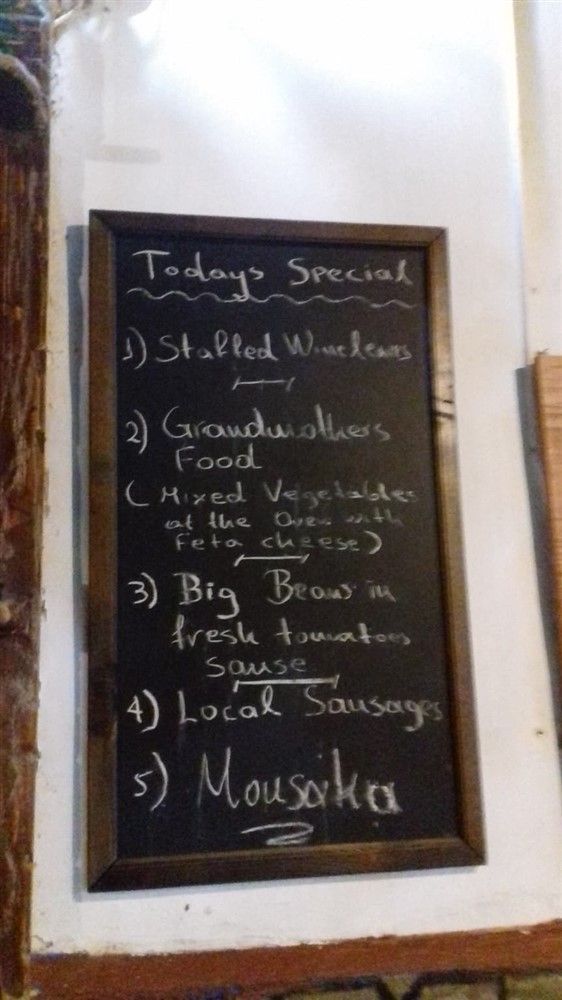 Todays Special
1) Stafled Wineleavs
2) Grandmothers
Food
(Mixed Vegetables
at the Oven with
Feta cheese)
3) Big Beans in
fresh tomatoes
sause
4) Local Sausages
5) Mousaka